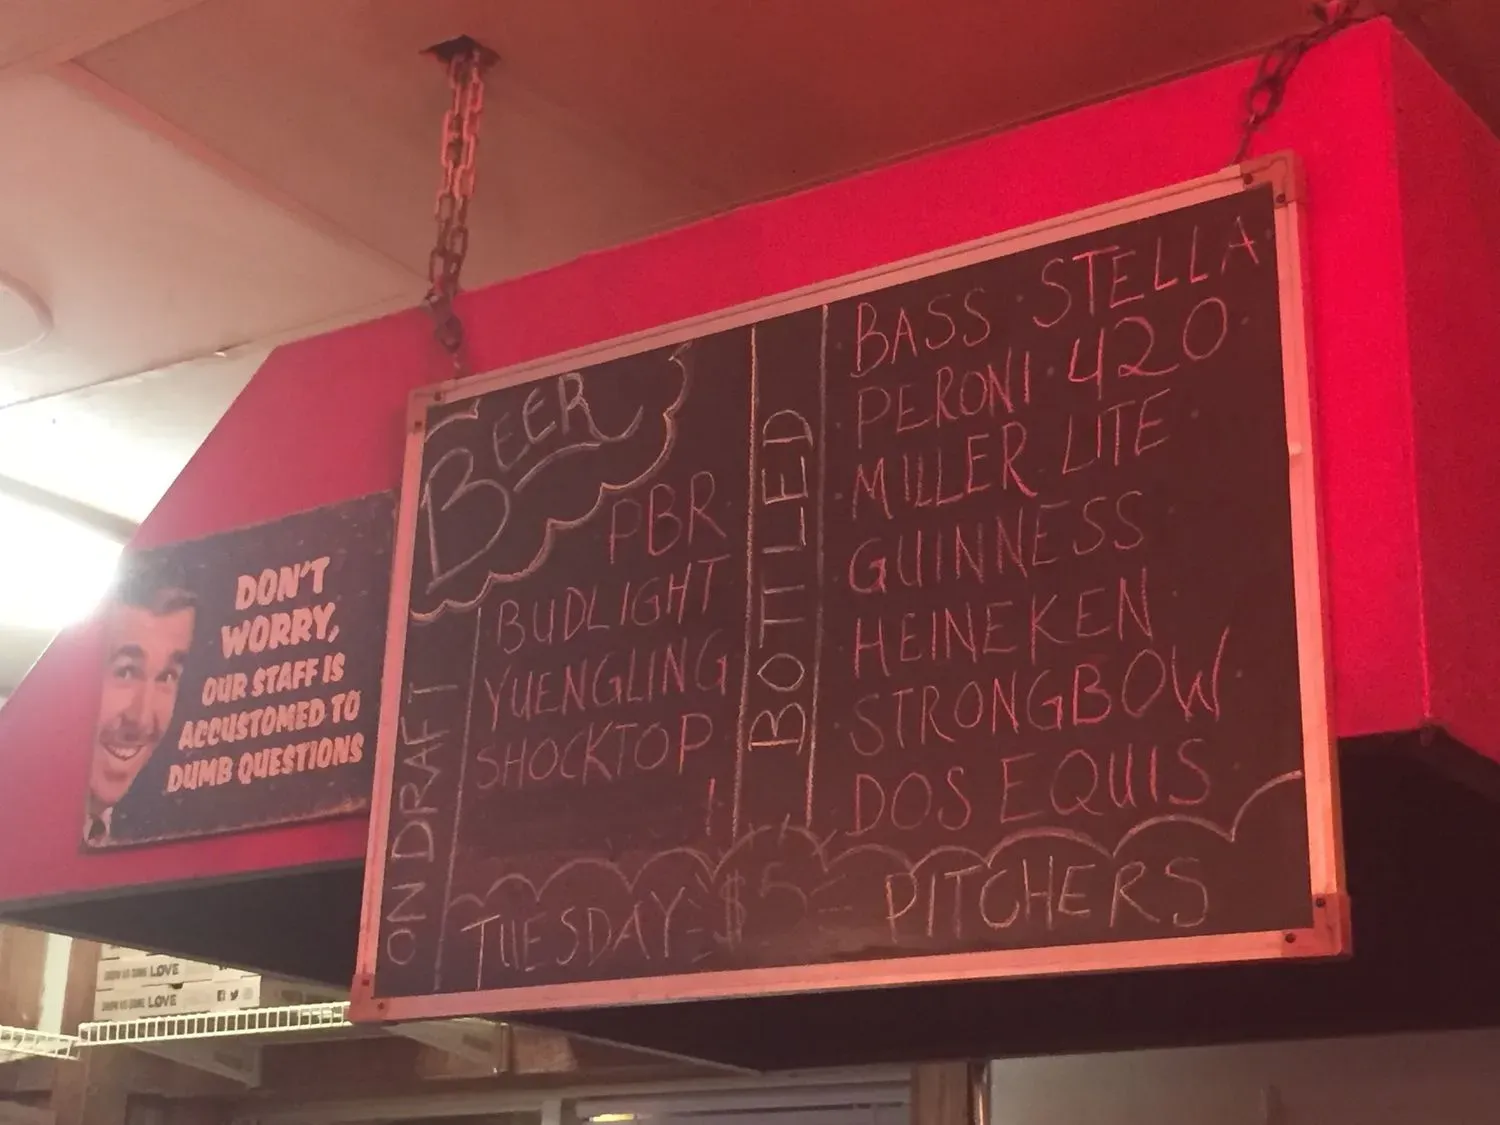 DON'T
WORRY,
OUR STAFF IS
ACCUSTOMED TO
DUMB QUESTIONS
BEER
ON DRAFT
PBR
BUDLIGHT
YUENGLING
SHOCKTOP
!
BOTTLED
BASS · STELLA
PERONI · 420
MILLER LITE
GUINNESS
HEINEKEN
STRONGBOW
DOS EQUIS
TUESDAY - $5 - PITCHERS
SHOW US SOME LOVE
SHOW US SOME LOVE